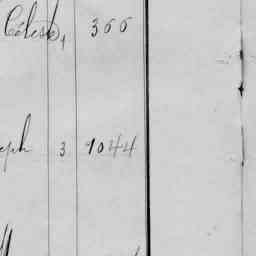 Céleste, 1 366
eph 3 1044